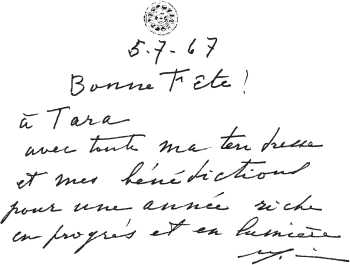 5-7-67
Bonne Fête!
à Tara
avec toute ma tendresse
et mes bénédictions
pour une année riche
en progrés et en lumière